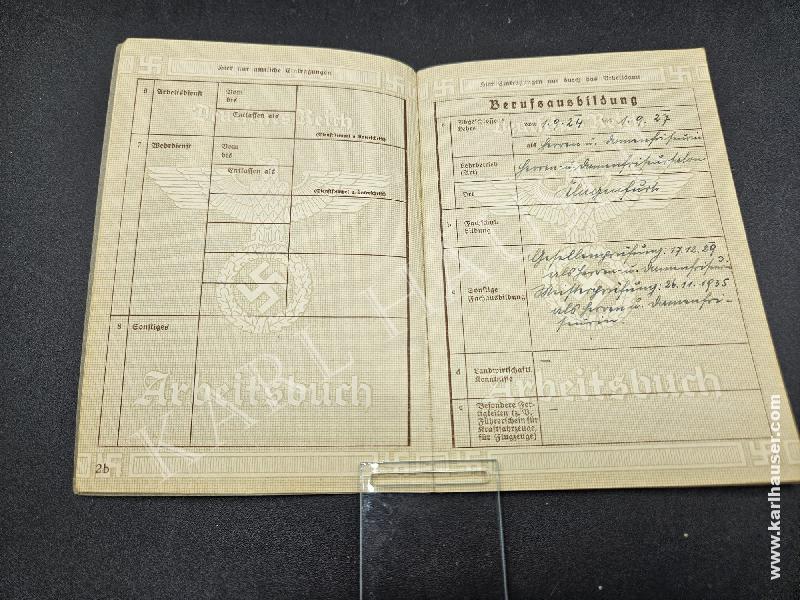 Hier nur amtliche Eintragungen
6 Arbeitsdienst
Vom
bis
Entlassen als
(Dienststempel u. Unterschrift)
7 Wehrdienst
Vom
bis
Entlassen als
(Dienststempel u. Unterschrift)
8 Sonstiges
Deutsches Reich
Arbeitsbuch
2b
Hier Eintragungen nur durch das Arbeitsamt
Berufsausbildung
a Abgeschlossene Lehre
von 1.9.24 bis 1.9.27
als Herren u. Damenfriseurin
Lehrbetrieb (Art)
Herren u. Damenfriseursalon
Ort
Klagenfurt
b Fachschulbildung
c Sonstige Fachausbildung
Gesellenprüfung: 17.12.29
als Herren u. Damenfriseurin
Meisterprüfung: 26.11.1935
als Herren u. Damenfri-
seurin.
d Landwirtschaftl. Kenntnisse
–
e Besondere Fer-
tigkeiten (z. B.
Führerschein für
Kraftfahrzeuge,
für Flugzeuge)
–
Arbeitsbuch
KARL HAUSER
www.karlhauser.com